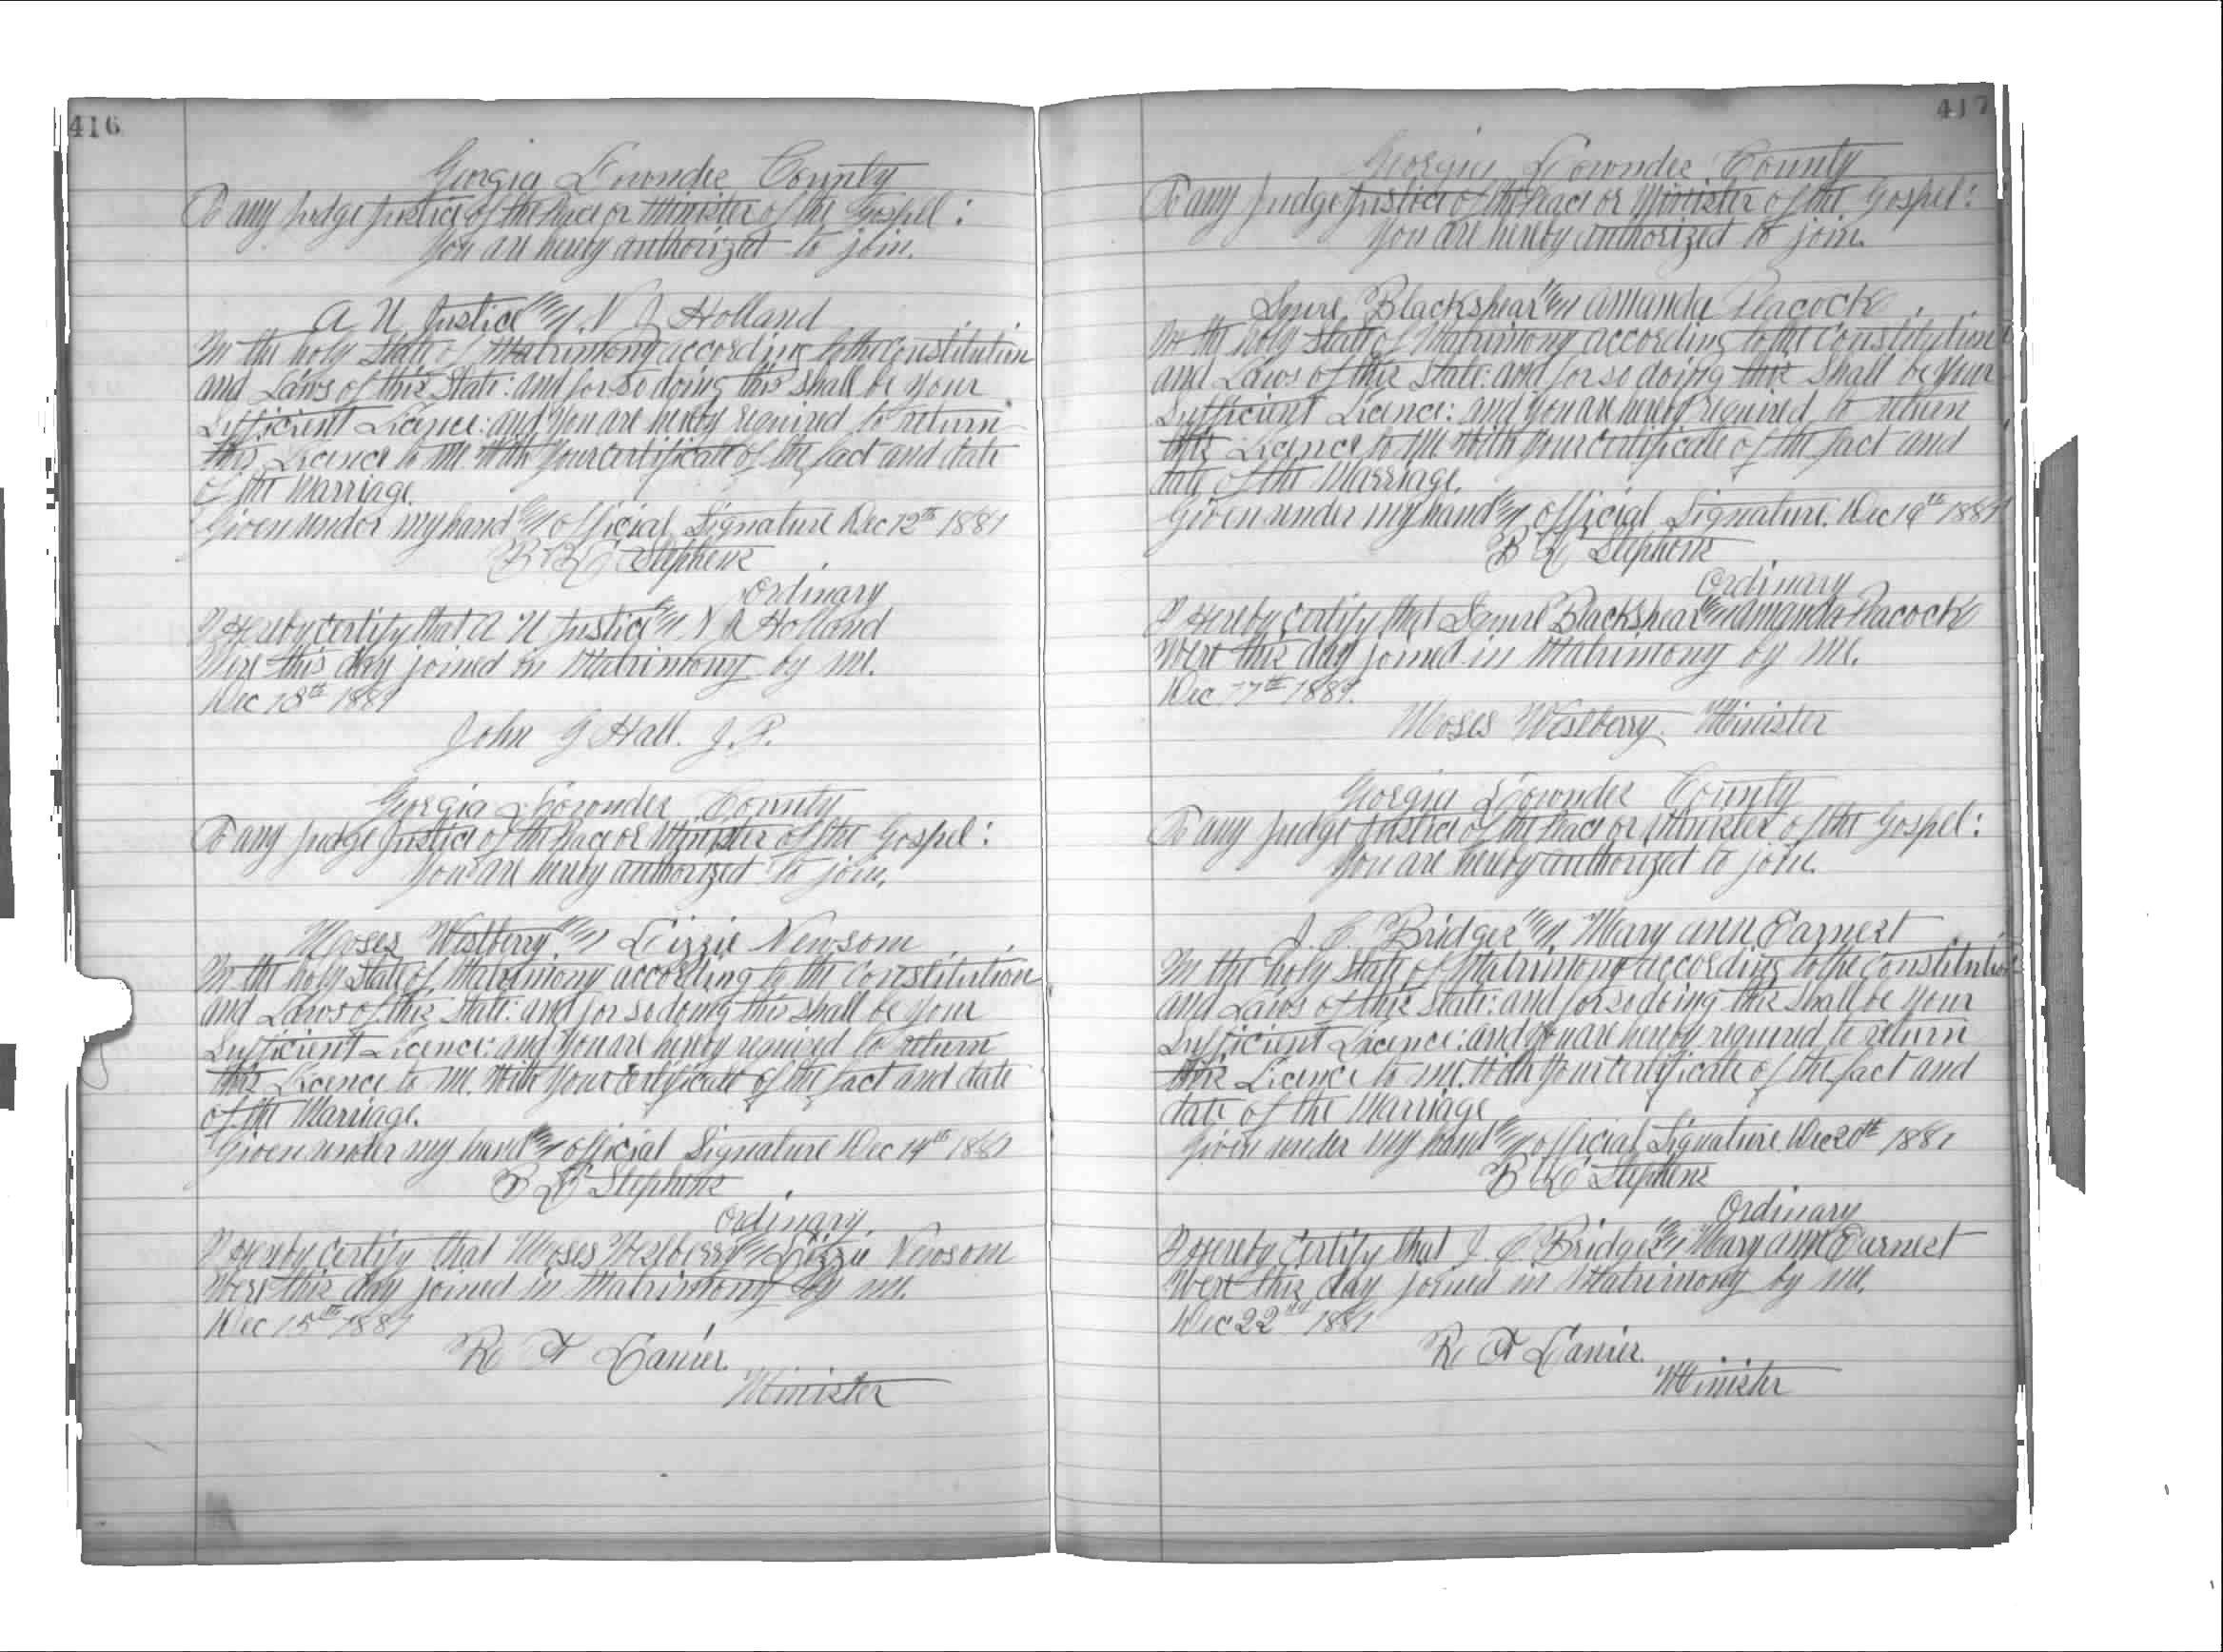 416
Georgia Lowndes County
To any Judge Justice of the Peace or Minister of the Gospel:
You are hereby authorized to join.
A N Justice & N J Holland
In the holy State of Matrimony according to the Constitution
and Laws of this State: and for so doing this shall be your
Sufficient Licence: and you are hereby required to return
this Licence to me with your certificate of the fact and date
of the Marriage.
Given under my hand & official Signature Dec 12th 1881
Stephens
Ordinary
I Hereby certify that A N Justice & Holland
Were this day joined in Matrimony by me.
Dec 18th 1881
John G Hall. J. P.
Georgia Lowndes County
To any Judge Justice of the Peace or Minister of the Gospel:
You are hereby authorized to join.
Moses Westberry & Lizzie Newsom
In the holy State of Matrimony according to the Constitution
and Laws of this State: and for so doing this shall be your
Sufficient Licence: and you are hereby required to return
this Licence to me. With your certificate of the fact and date
of the Marriage.
Given under my hand & official Signature Dec 14th 1881
Stephens
Ordinary.
I Hereby certify that Moses Westberry & Lizzie Newsom
Were this day joined in Matrimony by me.
Dec 15th 1881
R Lanier.
Minister
417
Georgia Lowndes County
To any Judge Justice of the Peace or Minister of the Gospel:
You are hereby authorized to join.
Blackshear & Amanda Peacock
In the holy State of Matrimony according to the Constitution
and Laws of this State: and for so doing this Shall be your
Sufficient Licence: and you are hereby required to return
this Licence to me with your certificate of the fact and
date of the Marriage.
Given under my hand & official Signature. Dec 1881
Stephens
Ordinary
I Hereby certify that Blackshear & Amanda Peacock
Were this day joined in Matrimony by me.
Dec 17th 1881.
Moses Westberry. Minister
Georgia Lowndes County
To any Judge Justice of the Peace or Minister of the Gospel:
You are hereby authorized to join.
J. C. Bridges & Mary ann Earnest
In the holy State of Matrimony according to the Constitution
and Laws of this State: and for so doing this Shall be your
Sufficient Licence: and you are hereby required to return
this Licence to me. With your certificate of the fact and
date of the Marriage
Given under my hand & official Signature. Dec 20th 1881
Stephens
Ordinary
I Hereby certify that J. C. Bridges & Mary ann Earnest
Were this day joined in Matrimony by me.
Dec 22nd 1881
R Lanier.
Minister